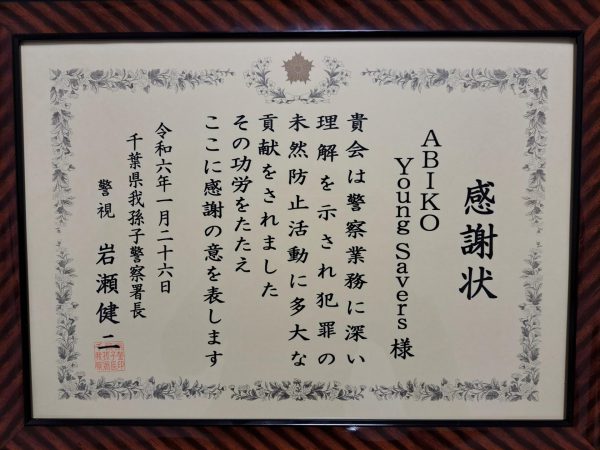 感謝状
ABIKO
Young Savers 様
貴会は警察業務に深い
理解を示され犯罪の
未然防止活動に多大な
貢献をされました
その功労をたたえ
ここに感謝の意を表します
令和六年一月二十六日
千葉県我孫子警察署長
警視 岩瀬健二